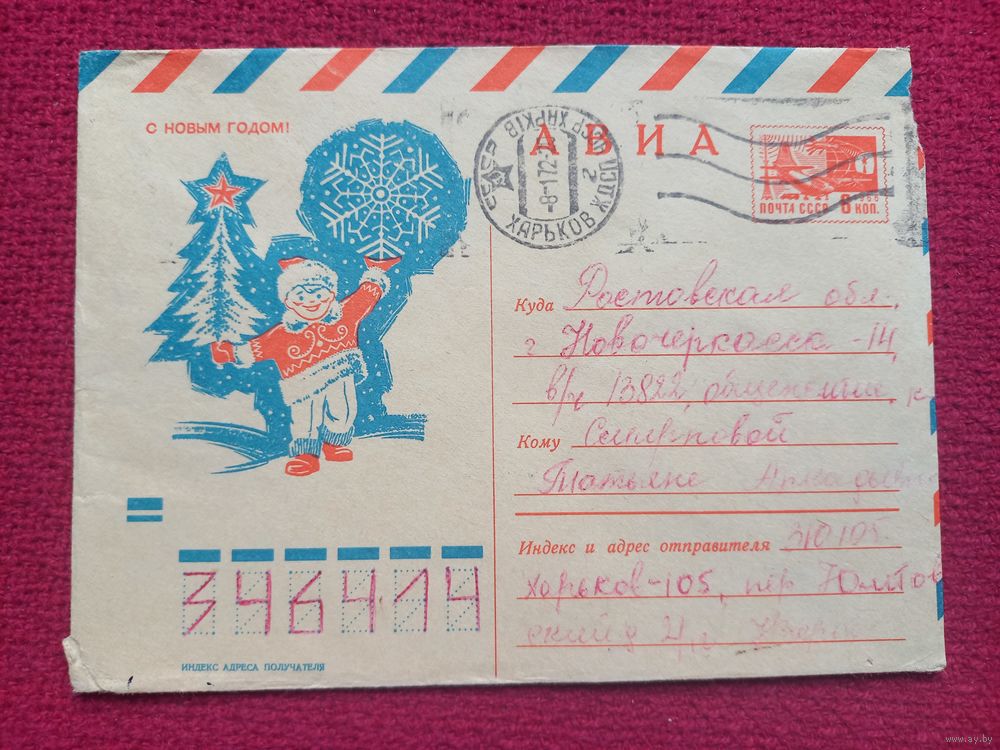 С НОВЫМ ГОДОМ!
АВИА
СССР ХАРЬКОВ ЖДСП ЦЕХ
-8-172-
2
ПОЧТА СССР 1966 6 КОП.
Куда Ростовская обл.
г Новочеркасск-14,
в/ч 13822, общежитие, к
Кому Смирновой
Татьяне Аркадьевне
Индекс и адрес отправителя 310105
Харьков-105, пер
ский д
346414
ИНДЕКС АДРЕСА ПОЛУЧАТЕЛЯ
www.ay.by